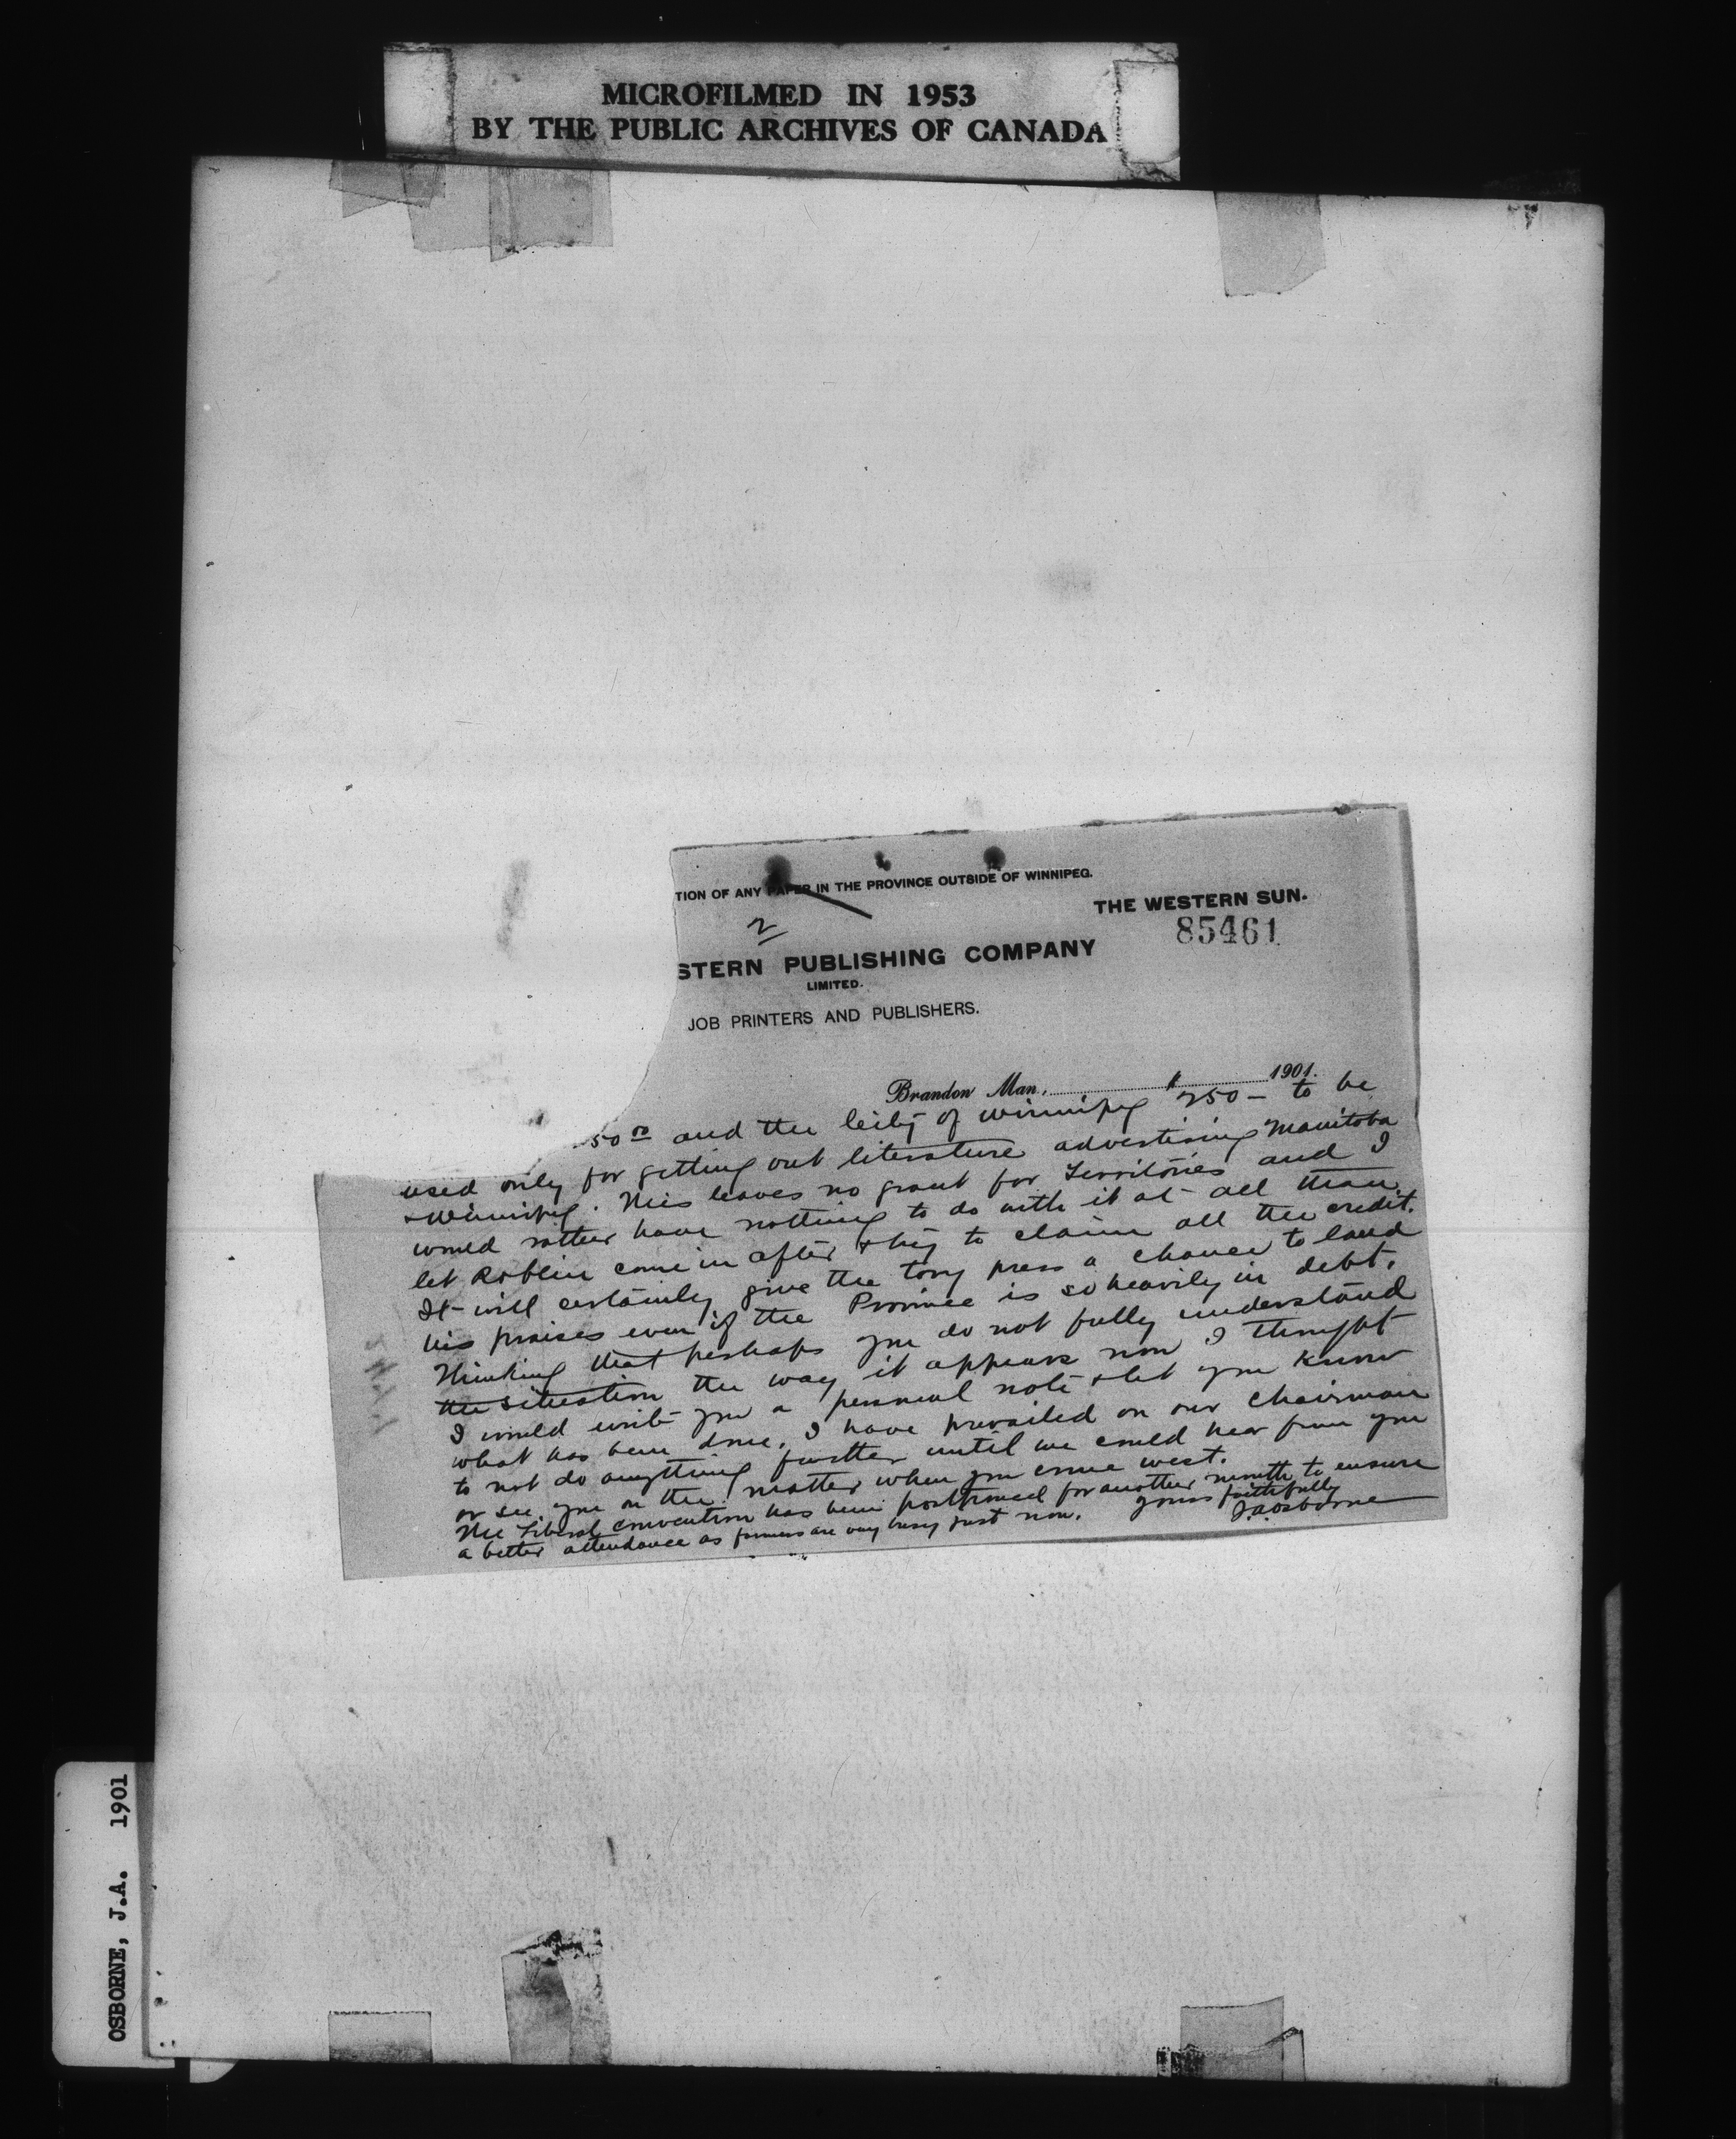 MICROFILMED IN 1953
BY THE PUBLIC ARCHIVES OF CANADA
TION OF ANY PAPER IN THE PROVINCE OUTSIDE OF WINNIPEG.
THE WESTERN SUN.
2
85461
STERN PUBLISHING COMPANY
LIMITED.
JOB PRINTERS AND PUBLISHERS.
Brandon Man, 1901.
50 00 and the City of Winnipeg $250 - to be
used only for getting out literature advertising Manitoba
+ Winnipeg. This leaves no grant for Territories and I
would rather have nothing to do with it at all than
let Roblin come in after & try to claim all the credit.
It will certainly give the tory press a chance to laud
his praises even if the Province is so heavily in debt.
Thinking that perhaps you do not fully understand
the situation the way it appears now I thought
I would write you a personal note & let you know
what has been done. I have prevailed on our chairman
to not do anything further until we could hear from you
or see you on the matter when you come west.
The Liberal convention has been postponed for another month to ensure
a better attendance as farmers are very busy just now.
yours faithfully
J.A. Osborne
OSBORNE, J.A. 1901